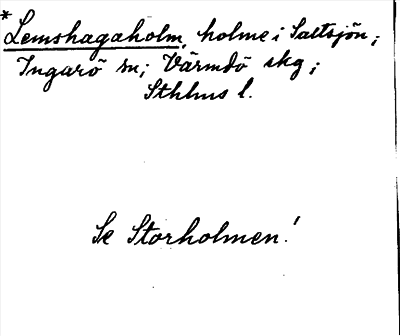 *
Lemshagaholm, holme i Saltsjön;
Ingarö sn; Värmdö skg;
Sthlms l.
Se Storholmen!